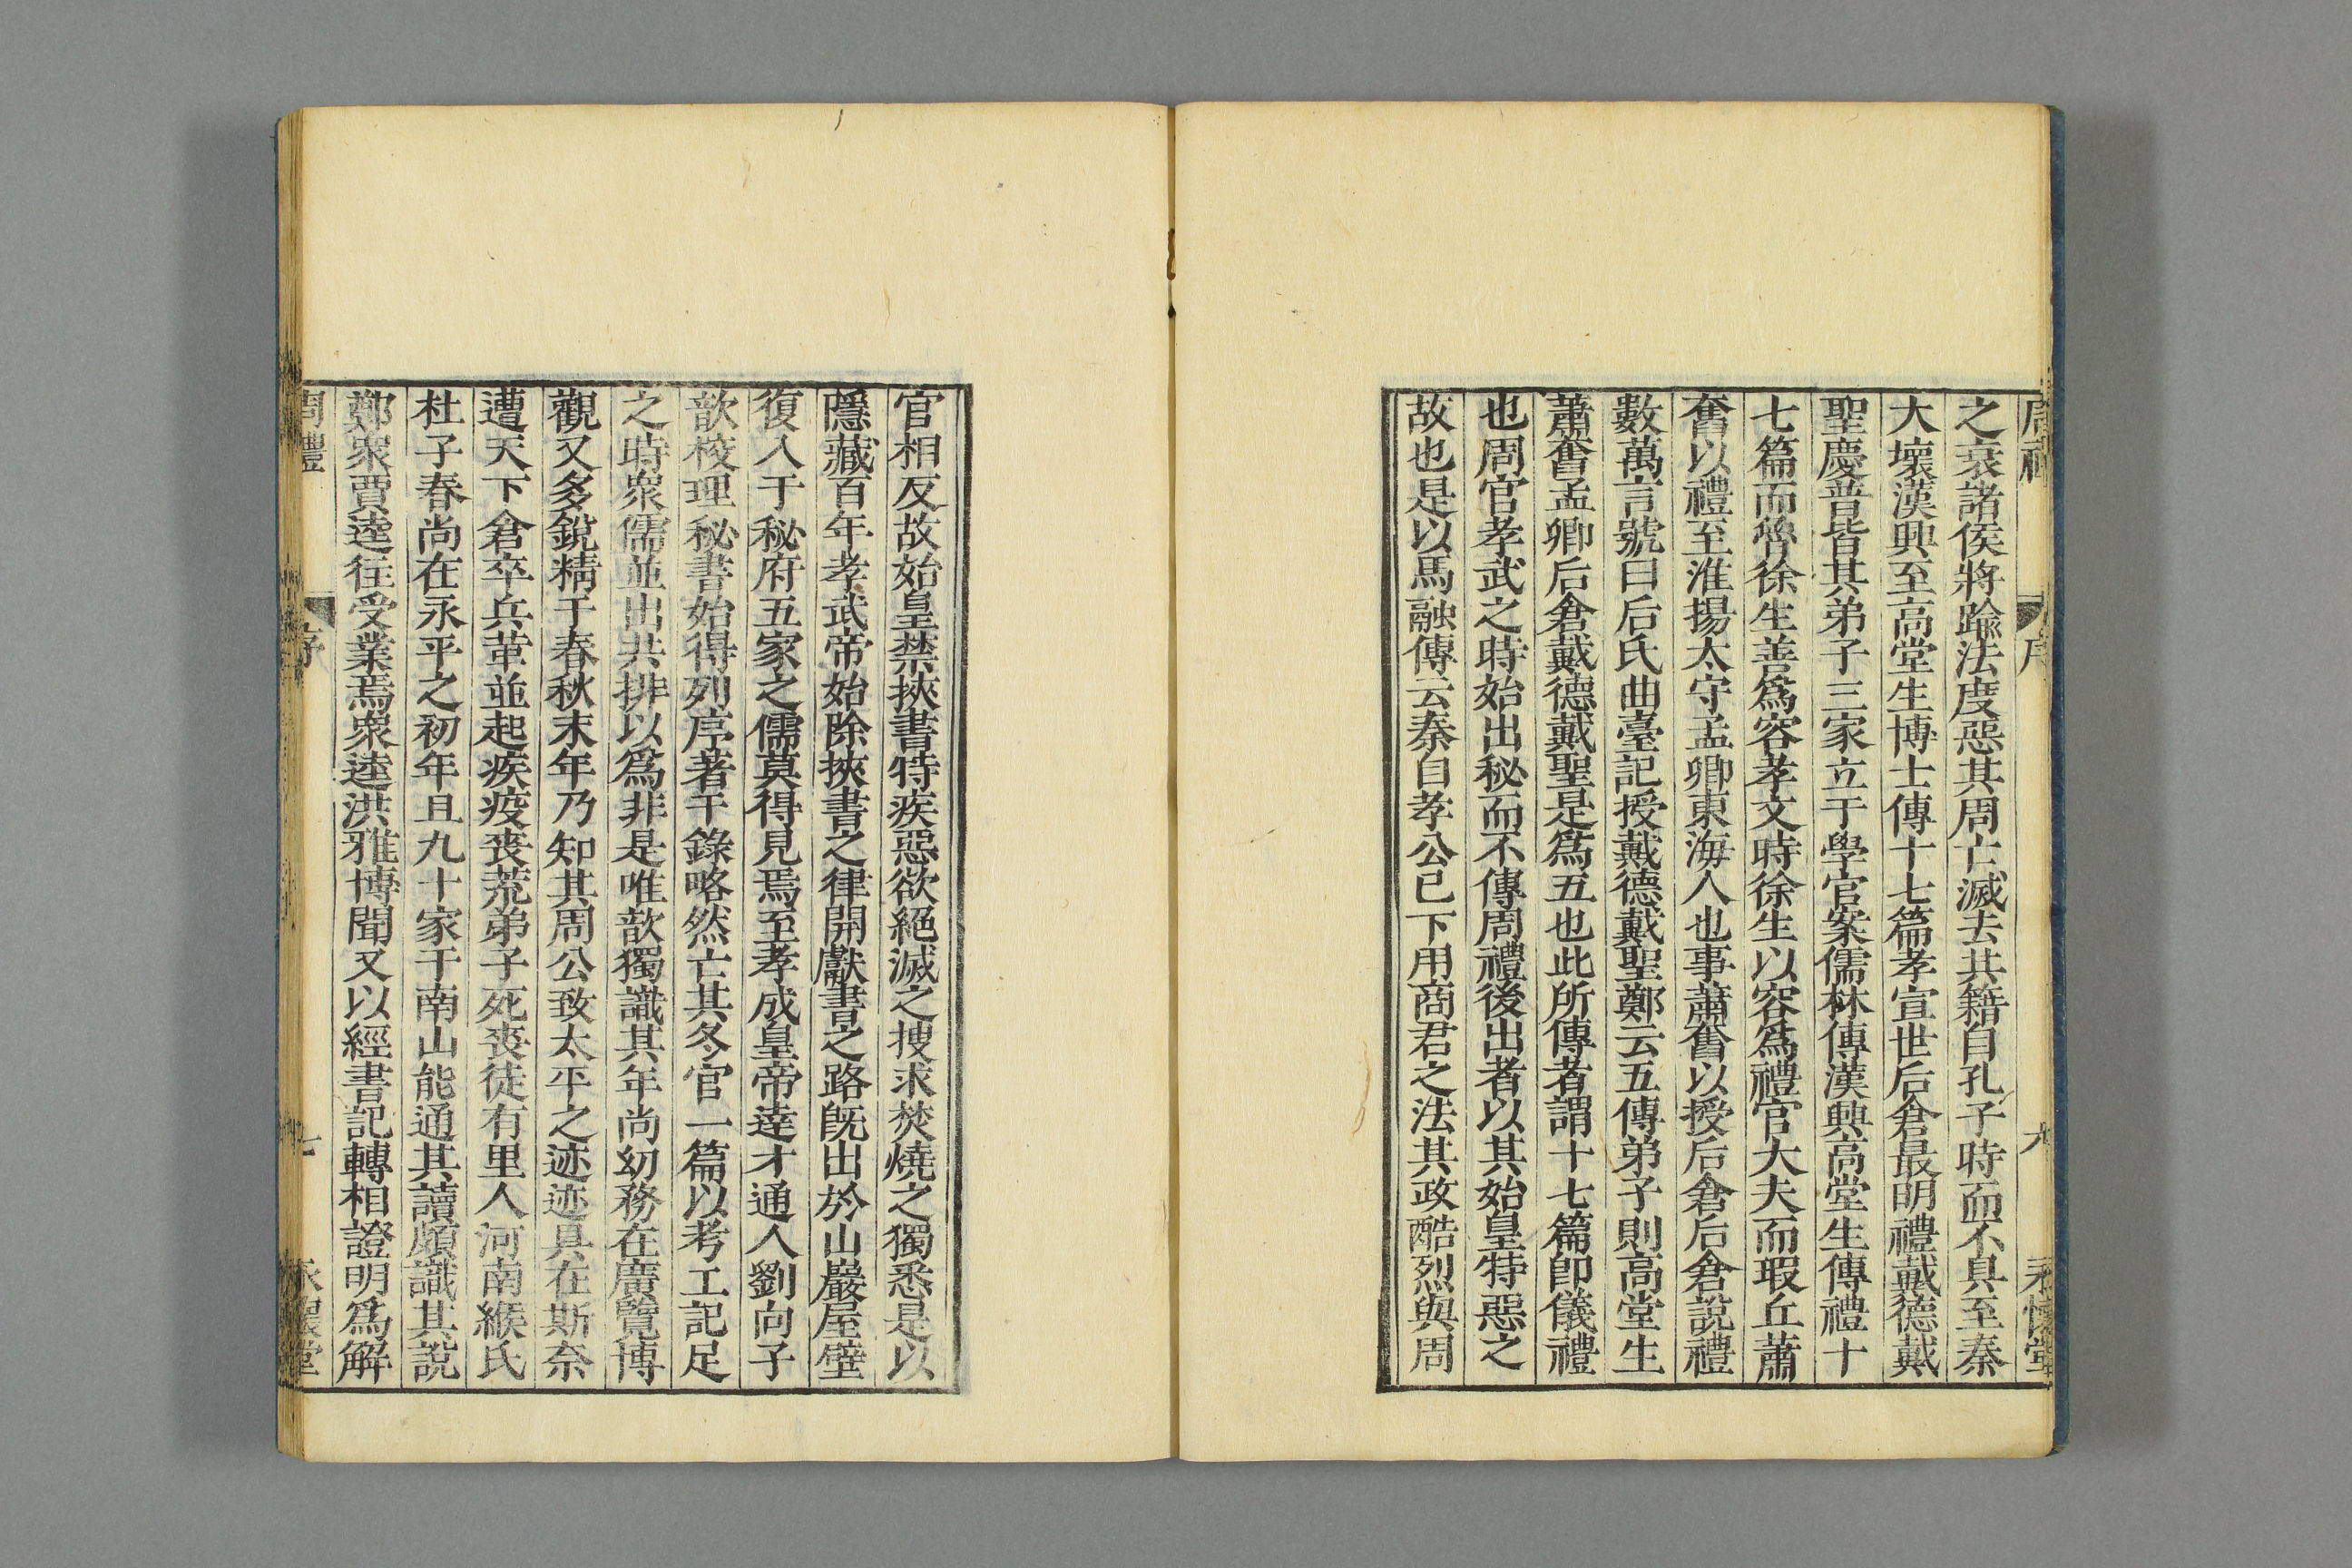 周禮 序 九 永懷堂
之衰諸侯將踰法度惡其周亡滅去其籍自孔子時而不具至秦
大壞漢興至高堂生博士傳十七篇孝宣世后倉最明禮戴德戴
聖慶普皆其弟子三家立于學官案儒林傳漢興高堂生傳禮十
七篇而魯徐生善爲容孝文時徐生以容爲禮官大夫而瑕丘蕭
奮以禮至淮揚太守孟卿東海人也事蕭奮以授后倉后倉說禮
數萬言號曰后氏曲臺記授戴德戴聖鄭云五傳弟子則高堂生
蕭奮孟卿后倉戴德戴聖是爲五也此所傳者謂十七篇卽儀禮
也周官孝武之時始出秘而不傳周禮後出者以其始皇特惡之
故也是以馬融傳云秦自孝公已下用商君之法其政酷烈與周
官相反故始皇禁挾書特疾惡欲絕滅之搜求焚燒之獨悉是以
隱藏百年孝武帝始除挾書之律開獻書之路旣出於山巖屋壁
復入于秘府五家之儒莫得見焉至孝成皇帝達才通人劉向子
歆校理秘書始得列序著于錄略然亡其冬官一篇以考工記足
之時衆儒並出共排以爲非是唯歆獨識其年尚幼務在廣覽博
觀又多銳精于春秋末年乃知其周公致太平之迹迹具在斯奈
遭天下倉卒兵革並起疾疫喪荒弟子死喪徒有里人河南緱氏
杜子春尚在永平之初年且九十家于南山能通其讀頗識其說
鄭衆賈逵往受業焉衆逵洪雅博聞又以經書記轉相證明爲解
周禮 序 七 永懷堂